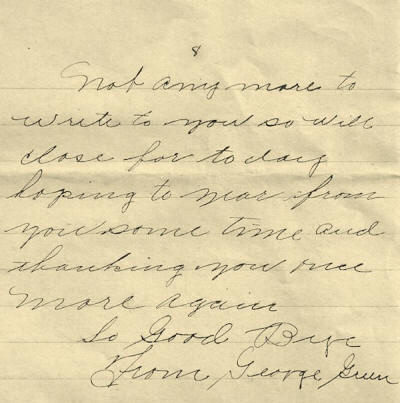 8
Not any more to
write to you so will
close for to day
hoping to year from
you some time and
thanking you once
more again
So Good Bye
From George Green